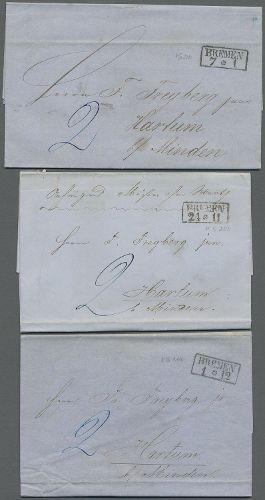 BREMEN
7 1
Herrn Fr Freyberg jun
Hartum
b/ Minden
2
BREMEN
24 11
Herrn Fr. Freyberg jun.
2
Hartum
b. Minden.
BREMEN
1 12
Herrn Fr Freyberg jr
2
Hartum
b/ Minden